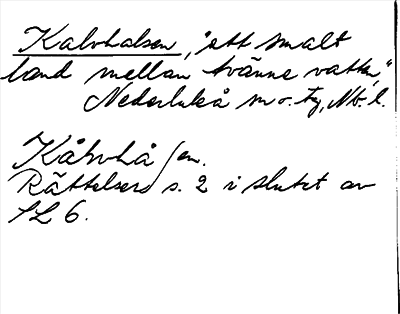 Kalvhalsen, "ett smalt
land mellan tvänne vatten,"
Nederluleå sn o. tg, Nb. l.
Kåhvhå sen.
Rättelser s. 2 i slutet av
SL 6.